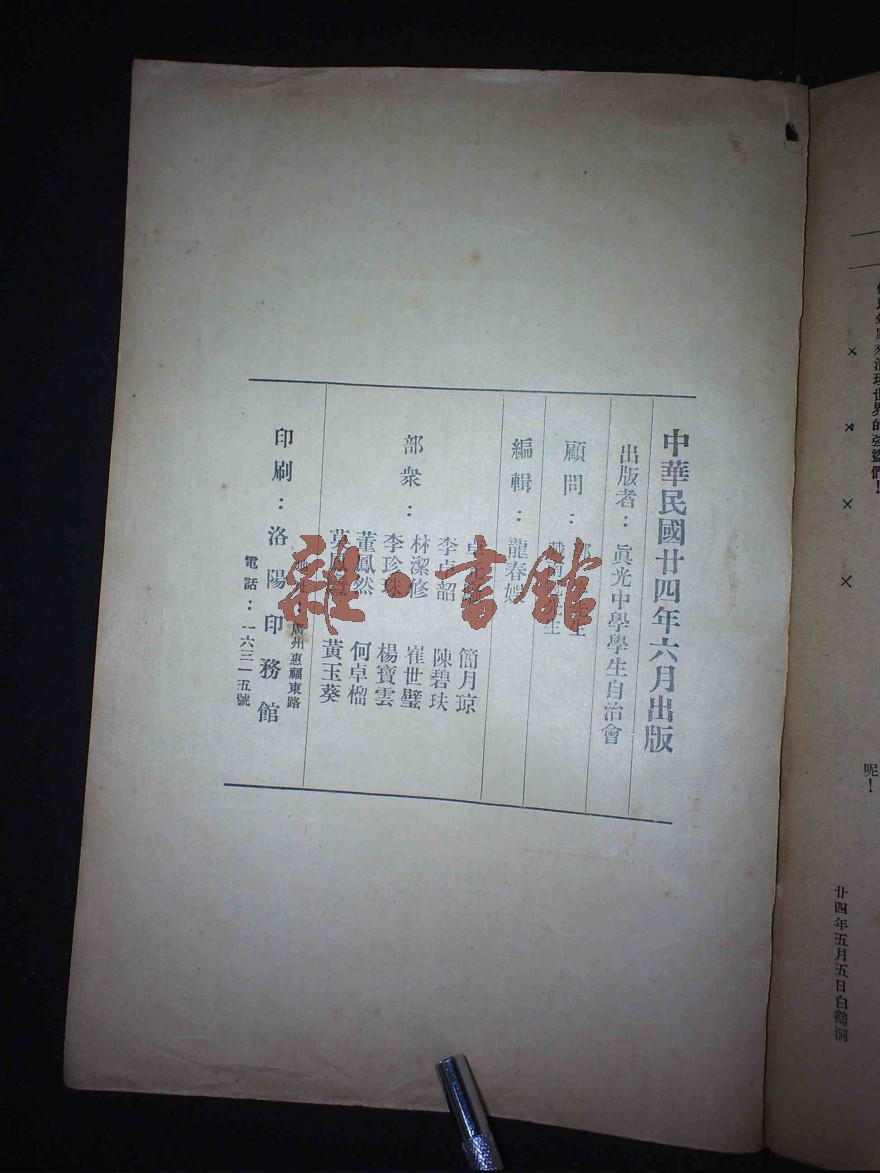 中華民國廿四年六月出版
出版者：眞光中學學生自治會
顧問：
先生
先生
編輯：龍春嫂
部衆：
簡月琼
李卓韶 陳碧玞
林潔修 崔世璧
李珍珠 楊寶雲
董鳳然 何卓榴
黃玉葵
印刷：洛陽印務館
廣州惠福東路
電話：一六三一五號
雜·書館
世界的強盜們！
呢！
廿四年五月五日白鶴洞